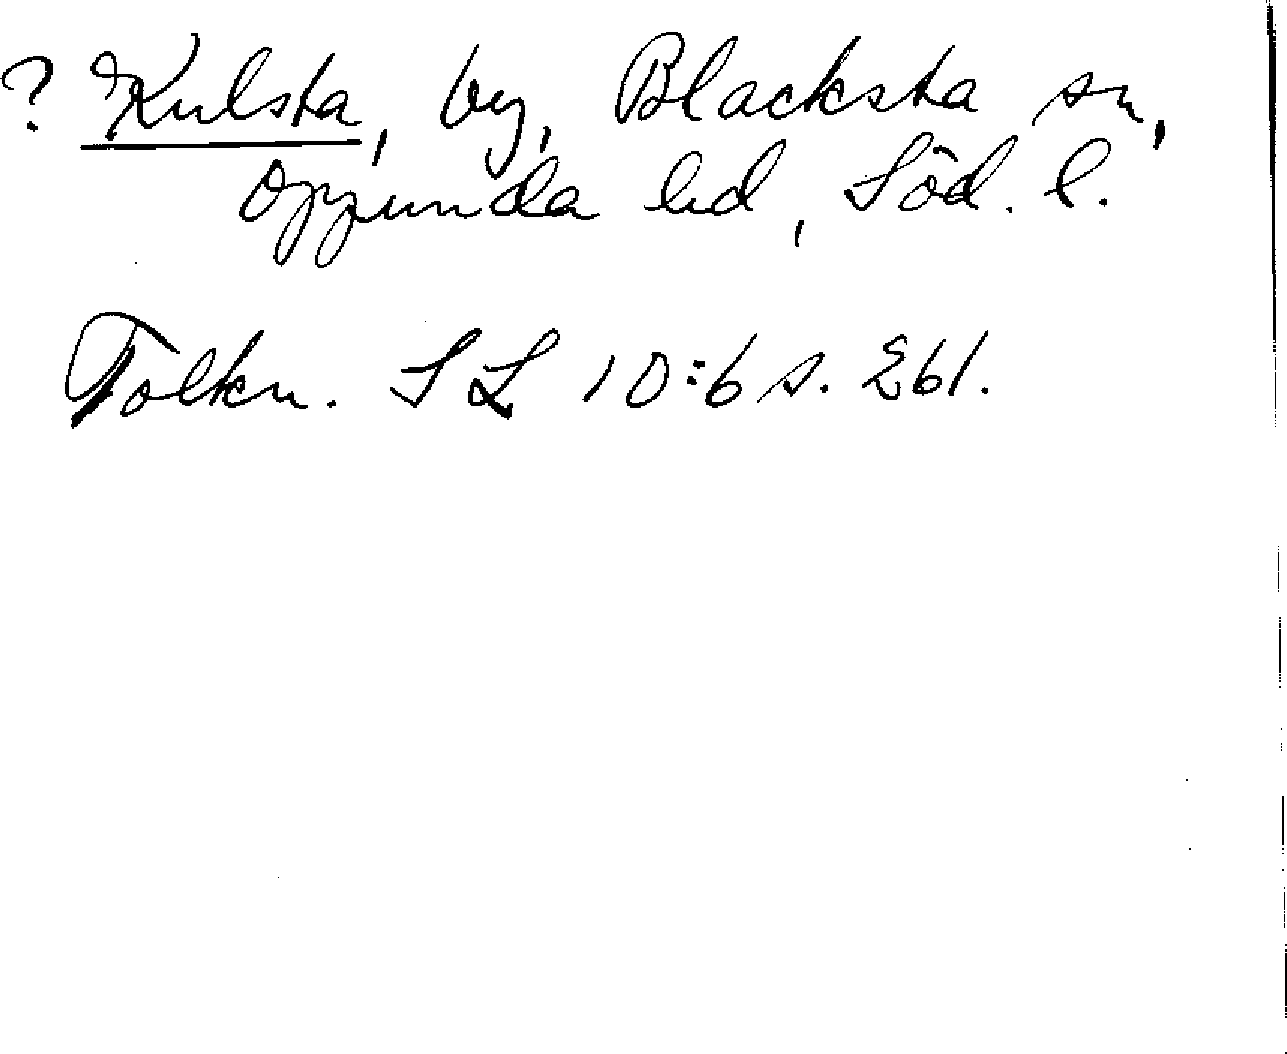 ? Kulsta, by, Blacksta sn,
Oppunda hd, Söd. l.
Tolkn. SL 10:6 s. 261.